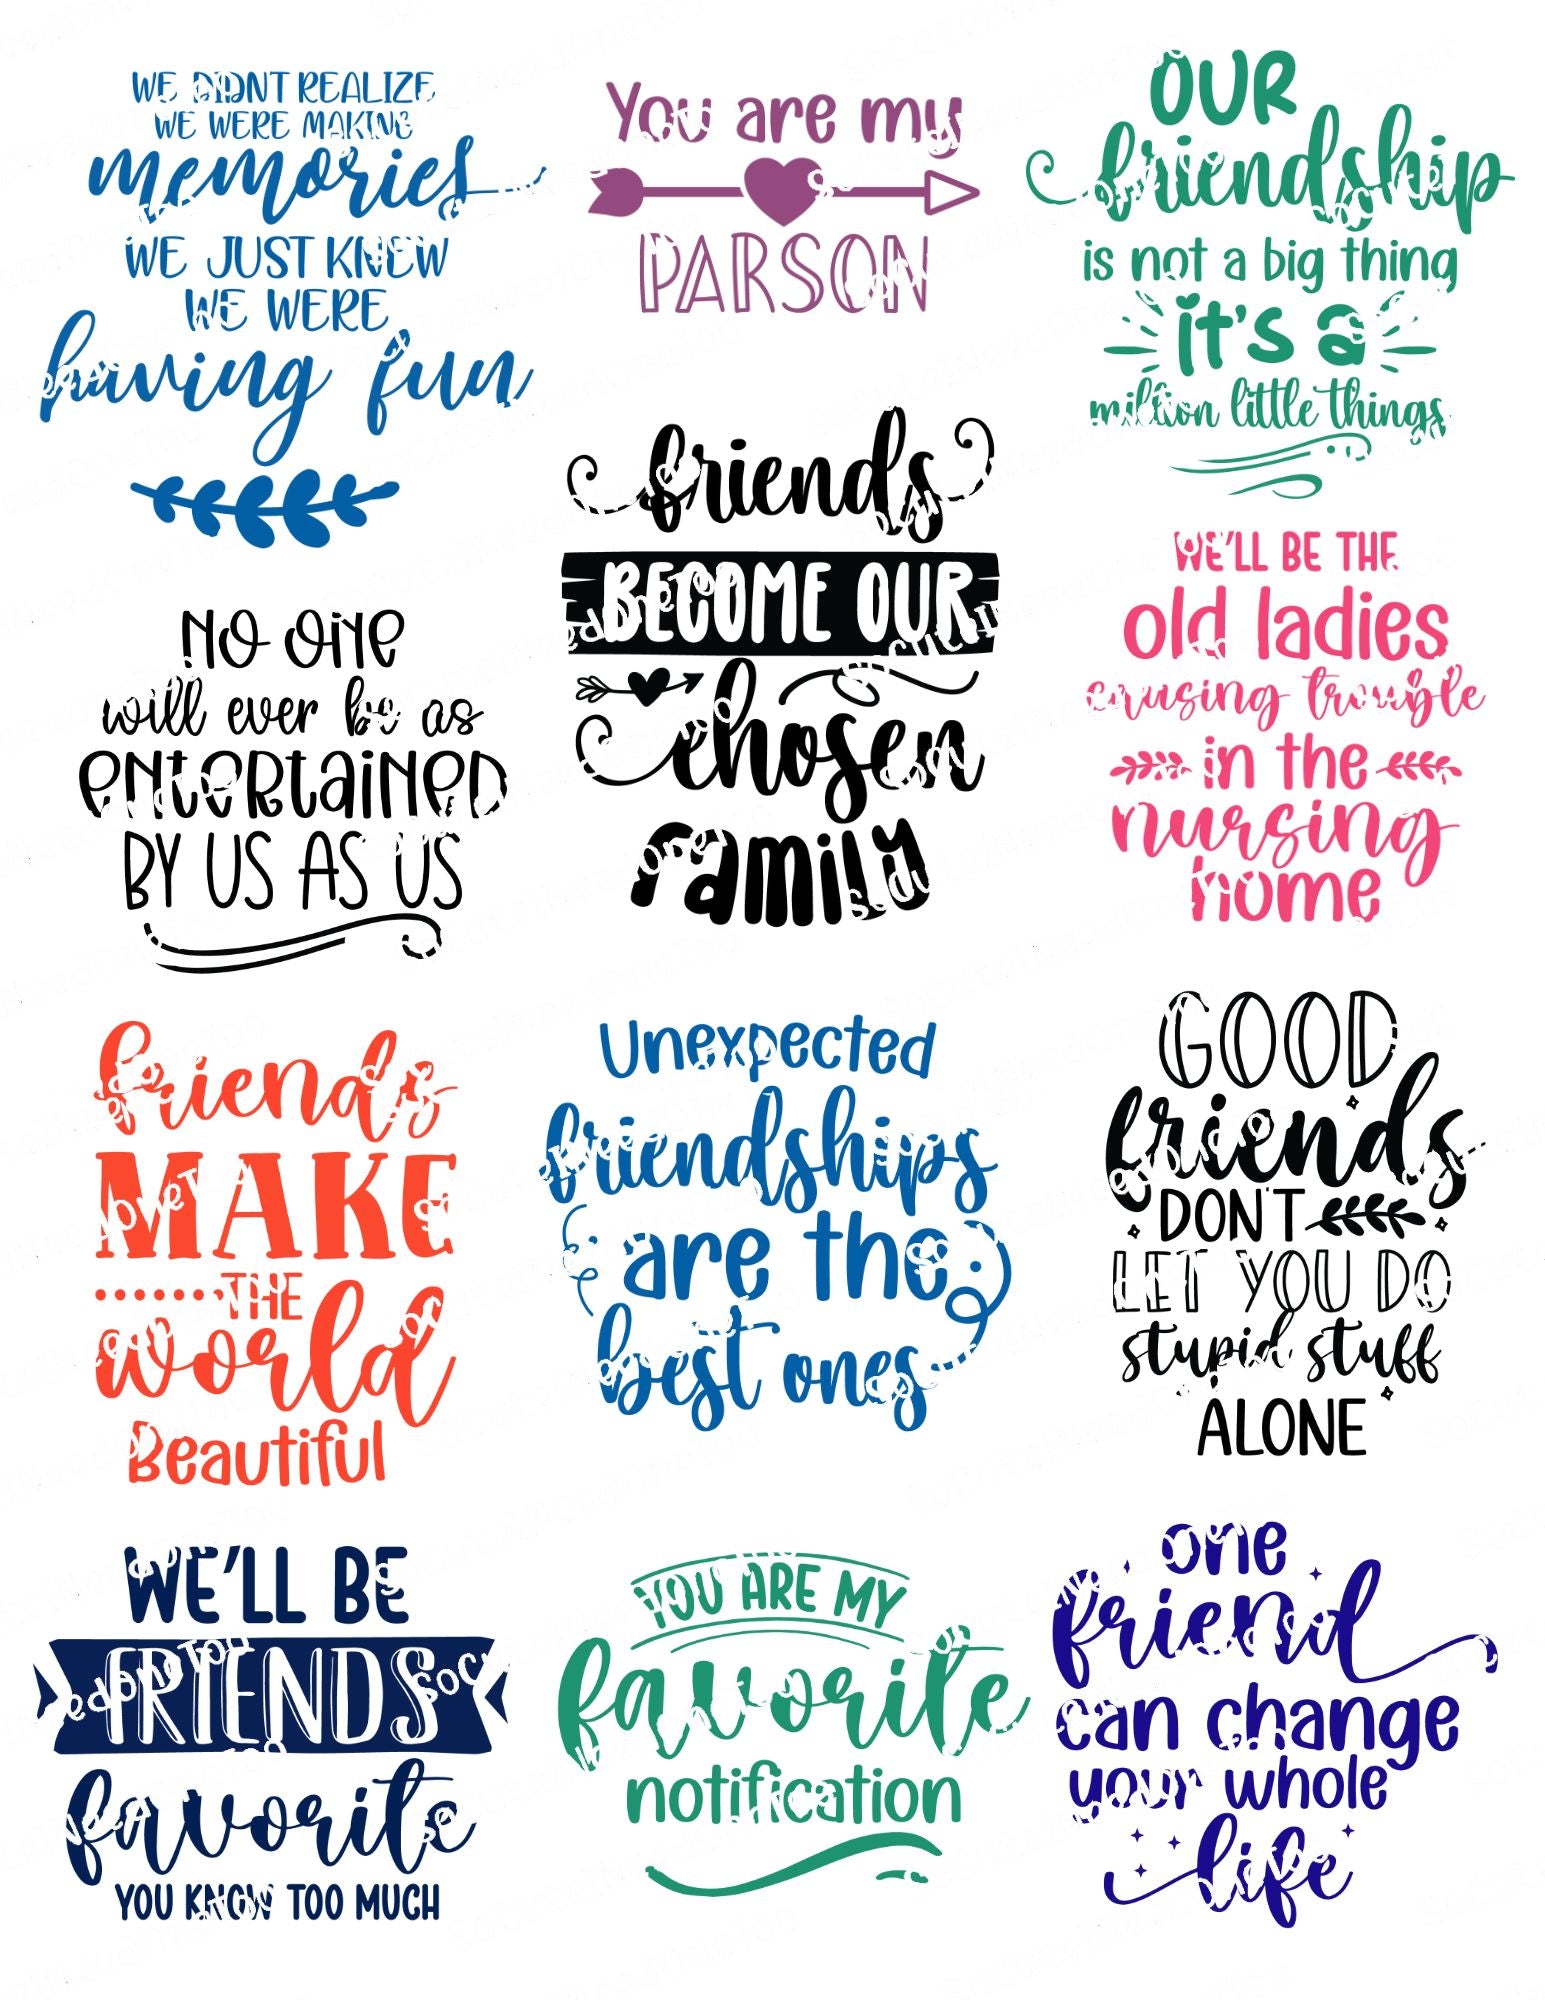 WE DIDNT REALIZE
WE WERE MAKING
memories
WE JUST KNEW
WE WERE
having fun
You are my
PARSON
OUR
friendship
is not a big thing
it's a
million little things
NO ONE
will ever be as
entertained
BY US AS US
friends
BECOME OUR
chosen
family
WE'LL BE THE
old ladies
causing trouble
in the
nursing
home
friends
MAKE
THE
world
Beautiful
Unexpected
friendships
are the
best ones
GOOD
friends
DON'T
LET YOU DO
stupid stuff
ALONE
WE'LL BE
FRIENDS
favorite
YOU KNOW TOO MUCH
YOU ARE MY
favorite
notification
one
friend
can change
your whole
life